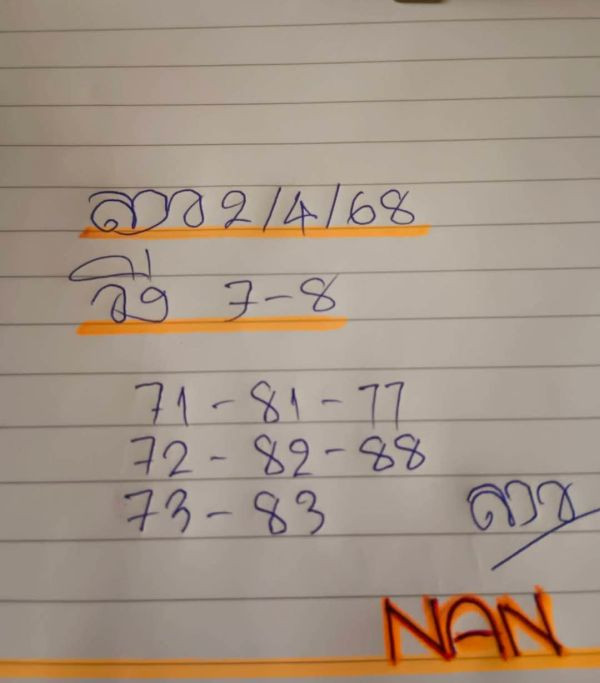 ลาว 2/4/68
วิ่ง 7-8
71-81-77
72-82-88
73-83
ลาว
NAN